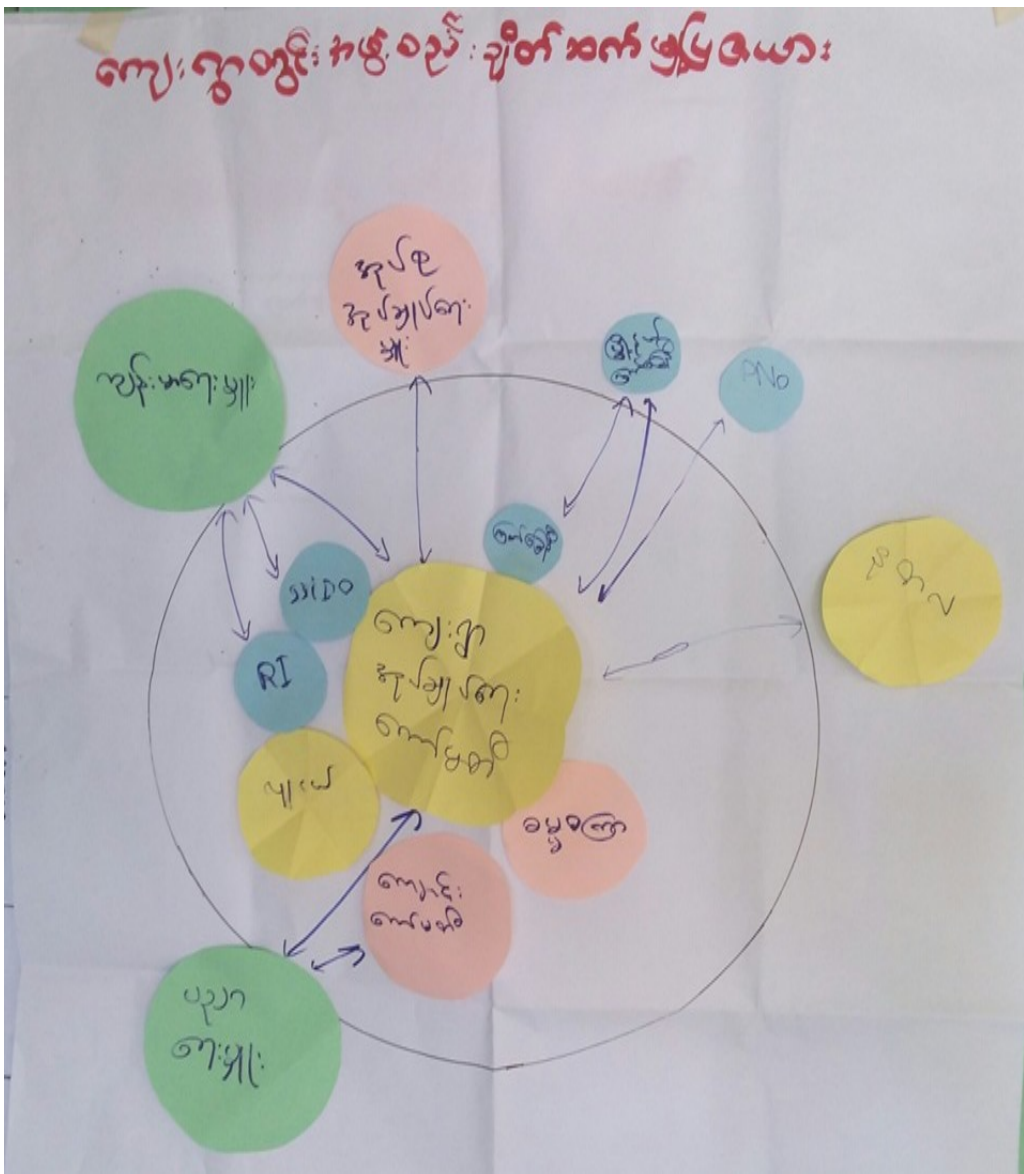 ကျေးရွာတွင်းအဖွဲ့စည်းချိတ်ဆက်မှုပြဇယား
အုပ်စု
အုပ်ချုပ်ရေး
မှူး
ကျန်းမာရေးမှူး
PNO
ကြက်ခြေနီ
RI
ကျေးရွာ
အုပ်ချုပ်ရေး
ကော်မတီ
လူငယ်
ဓမ္မစကြာ
ကျောင်း
ကော်မတီ
ပညာ
ရေးမှူး